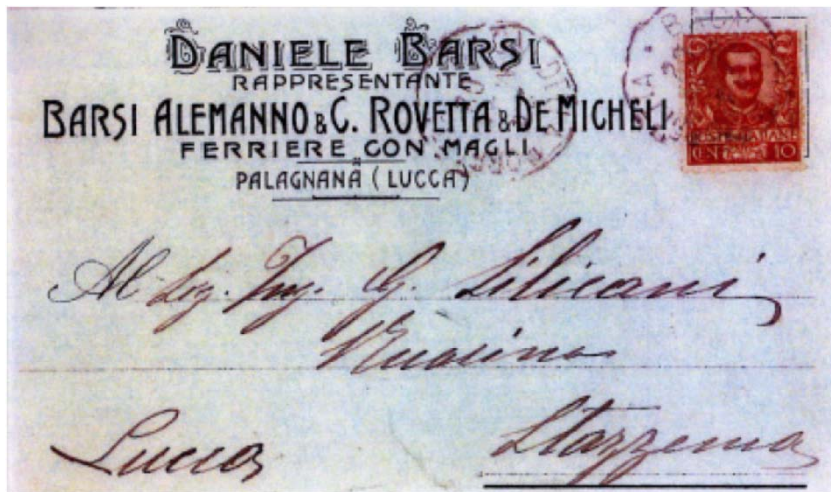 DANIELE BARSI
RAPPRESENTANTE
BARSI ALEMANNO & C. ROVETTA & DE MICHELI
FERRIERE CON MAGLI
PALAGNANA (LUCCA)
POSTE ITALIANE
CENT. 10
Al Sig. Ing. G. Silicani
Ruosina
Lucca
Stazzema